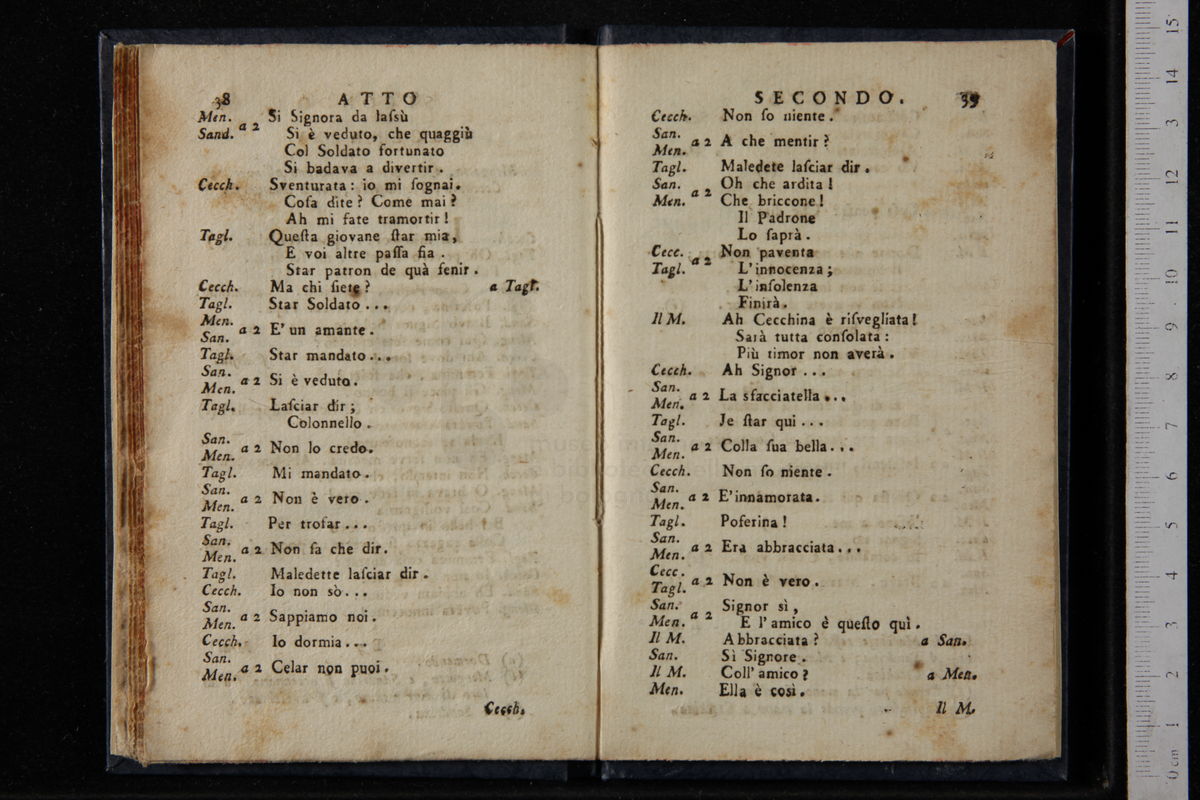 38 ATTO
Men. Si Signora da laſsù
Sand. a 2 Si è veduto, che quaggiù
Col Soldato fortunato
Si badava a divertir.
Cecch. Sventurata: io mi ſognai.
Coſa dite? Come mai?
Ah mi fate tramortir!
Tagl. Queſta giovane ſtar mia,
E voi altre paſſa ſia.
Star patron de quà ſenir.
Cecch. Ma chi ſiete? a Tagl.
Tagl. Star Soldato...
Men.
San. a 2 E' un amante.
Tagl. Star mandato...
San.
Men. a 2 Si è veduto.
Tagl. Laſciar dir;
Colonnello.
San.
Men. a 2 Non lo credo.
Tagl. Mi mandato.
San.
Men. a 2 Non è vero.
Tagl. Per trofar...
San.
Men. a 2 Non ſa che dir.
Tagl. Maledette laſciar dir.
Cecch. Io non sò...
San.
Men. a 2 Sappiamo noi.
Cecch. Io dormia...
San.
Men. a 2 Celar non puoi.
Cecch.
SECONDO. 39
Cecch. Non ſo niente.
San.
Men. a 2 A che mentir?
Tagl. Maledete laſciar dir.
San. Oh che ardita!
Men. a 2 Che briccone!
Il Padrone
Lo ſaprà.
Cecc. Non paventa
Tagl. a 2 L'innocenza;
L'inſolenza
Finirà.
Il M. Ah Cecchina è riſvegliata!
Sarà tutta conſolata:
Più timor non averà.
Cecch. Ah Signor...
San.
Men. a 2 La sfacciatella...
Tagl. Je ſtar qui...
San.
Men. a 2 Colla ſua bella...
Cecch. Non ſo niente.
San.
Men. a 2 E' innamorata.
Tagl. Poferina!
San.
Men. a 2 Era abbracciata...
Cecc.
Tagl. a 2 Non è vero.
San. Signor sì,
Men. a 2 E l'amico è queſto quì.
Il M. Abbracciata? a San.
San. Sì Signore.
Il M. Coll'amico? a Men.
Men. Ella è così.
Il M.
0 cm 1 2 3 4 5 6 7 8 9 10 11 12 3 14 15